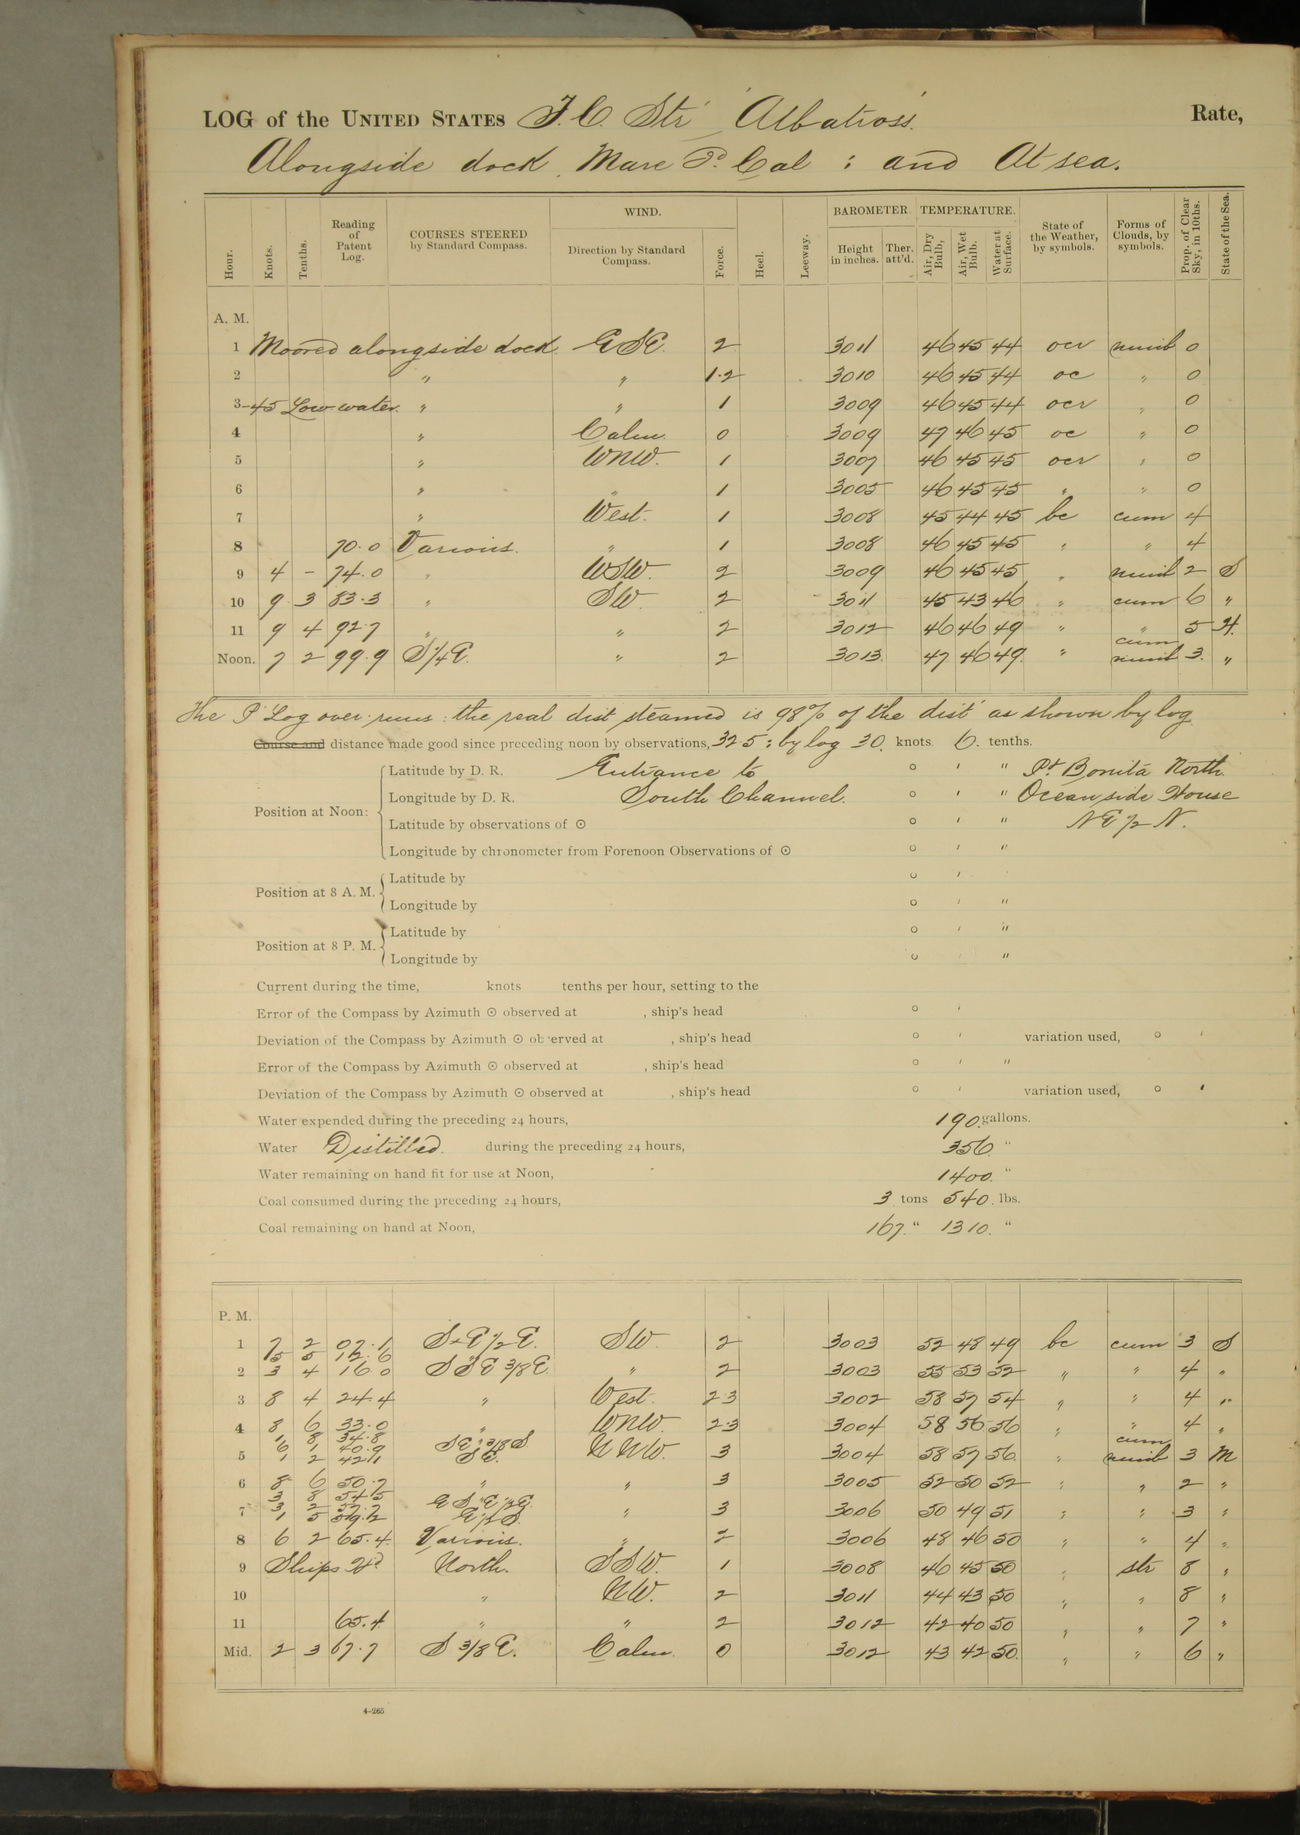 LOG of the UNITED STATES F. C. Str "Albatross" Rate,
Alongside dock, Mare Id Cal : and At sea.
Hour. Knots. Tenths. Reading of Patent Log. COURSES STEERED by Standard Compass. WIND. Direction by Standard Compass. Force. Heel. Leeway. BAROMETER. Height in inches. Ther. att'd. TEMPERATURE. Air, Dry Bulb, Air, Wet Bulb. Water at Surface. State of the Weather, by symbols. Forms of Clouds, by symbols. Prop. of Clear Sky, in 10ths. State of the Sea.
A. M.
1 Moored alongside dock. ESE. 2 3011 46 45 44 ocr nimb 0
2 " " 1.2 3010 46 45 44 oc " 0
3-45 Low water. " " 1 3009 46 45 44 ocr " 0
4 " Calm. 0 3009 47 46 45 oc " 0
5 " WNW. 1 3007 46 45 45 ocr " 0
6 " " 1 3005 46 45 45 " " 0
7 " West. 1 3008 45 44 45 bc cum 4
8 70.0 Various. " 1 3008 46 45 45 " " 4
9 4 – 74.0 " WSW. 2 3009 46 45 45 " nimb 2 S
10 9 3 83.3 " SW. 2 3011 45 43 46 " cum 6 "
11 9 4 92.7 " " 2 3012 46 46 49 " " 5 H.
Noon. 7 2 99.9 S¼E. " 2 3013 47 46 49 " cum nimb 3 "
The P Log over-runs: the real dist steamed is 98% of the dist as shown by log
Course and distance made good since preceding noon by observations, 32 5 ; by log 30. knots 6. tenths.
Position at Noon: Latitude by D. R. Entrance to ° ' " Pt Bonita North
Longitude by D. R. South Channel. ° ' " Ocean side House
Latitude by observations of ☉ ° ' " NE ½ N.
Longitude by chronometer from Forenoon Observations of ☉ ° ' "
Position at 8 A. M. Latitude by ° '
Longitude by ° ' "
Position at 8 P. M. Latitude by ° ' "
Longitude by ° ' "
Current during the time, knots tenths per hour, setting to the
Error of the Compass by Azimuth ☉ observed at , ship's head ° '
Deviation of the Compass by Azimuth ☉ observed at , ship's head ° ' variation used, ° '
Error of the Compass by Azimuth ☉ observed at , ship's head ° ' "
Deviation of the Compass by Azimuth ☉ observed at , ship's head ° ' variation used, ° '
Water expended during the preceding 24 hours, 190 gallons.
Water Distilled. during the preceding 24 hours, 356 "
Water remaining on hand fit for use at Noon, 1400. "
Coal consumed during the preceding 24 hours, 3 tons 540. lbs.
Coal remaining on hand at Noon, 167. " 1310. "
P. M.
1 7 2 07.1 SxE½E. SW. 2 3003 52 48 49 bc cum 3 S
5 5 12.6
2 3 4 16.0 SSE 3/8 E. " 2 3003 55 53 52 " " 4 "
3 8 4 24.4 " West. 2.3 3002 58 57 54 " " 4 "
4 8 6 33.0 " WNW. 2.3 3004 58 56 56 " " 4 "
1 8 34.8
6 1 40.9 cum
5 1 2 42.1 SE. NNW. 3 3004 58 57 56 " nimb 3 M
6 8 6 50.7 " " 3 3005 52 50 52 " " 2 "
3 8 54.5
3 2 57.7
7 1 5 59.2 " 3 3006 50 49 51 " " 3 "
8 6 2 65.4 Various. " 2 3006 48 46 50 " " 4 "
9 Ships Hd North. SSW. 1 3008 46 45 50 " str 8 "
10 " NW. 2 3011 44 43 50 " " 8 "
11 65.4 " " 2 3012 42 40 50 " " 7 "
Mid. 2 3 67.7 S 3/8 E. Calm. 0 3012 43 42 50 " " 6 "
4–265